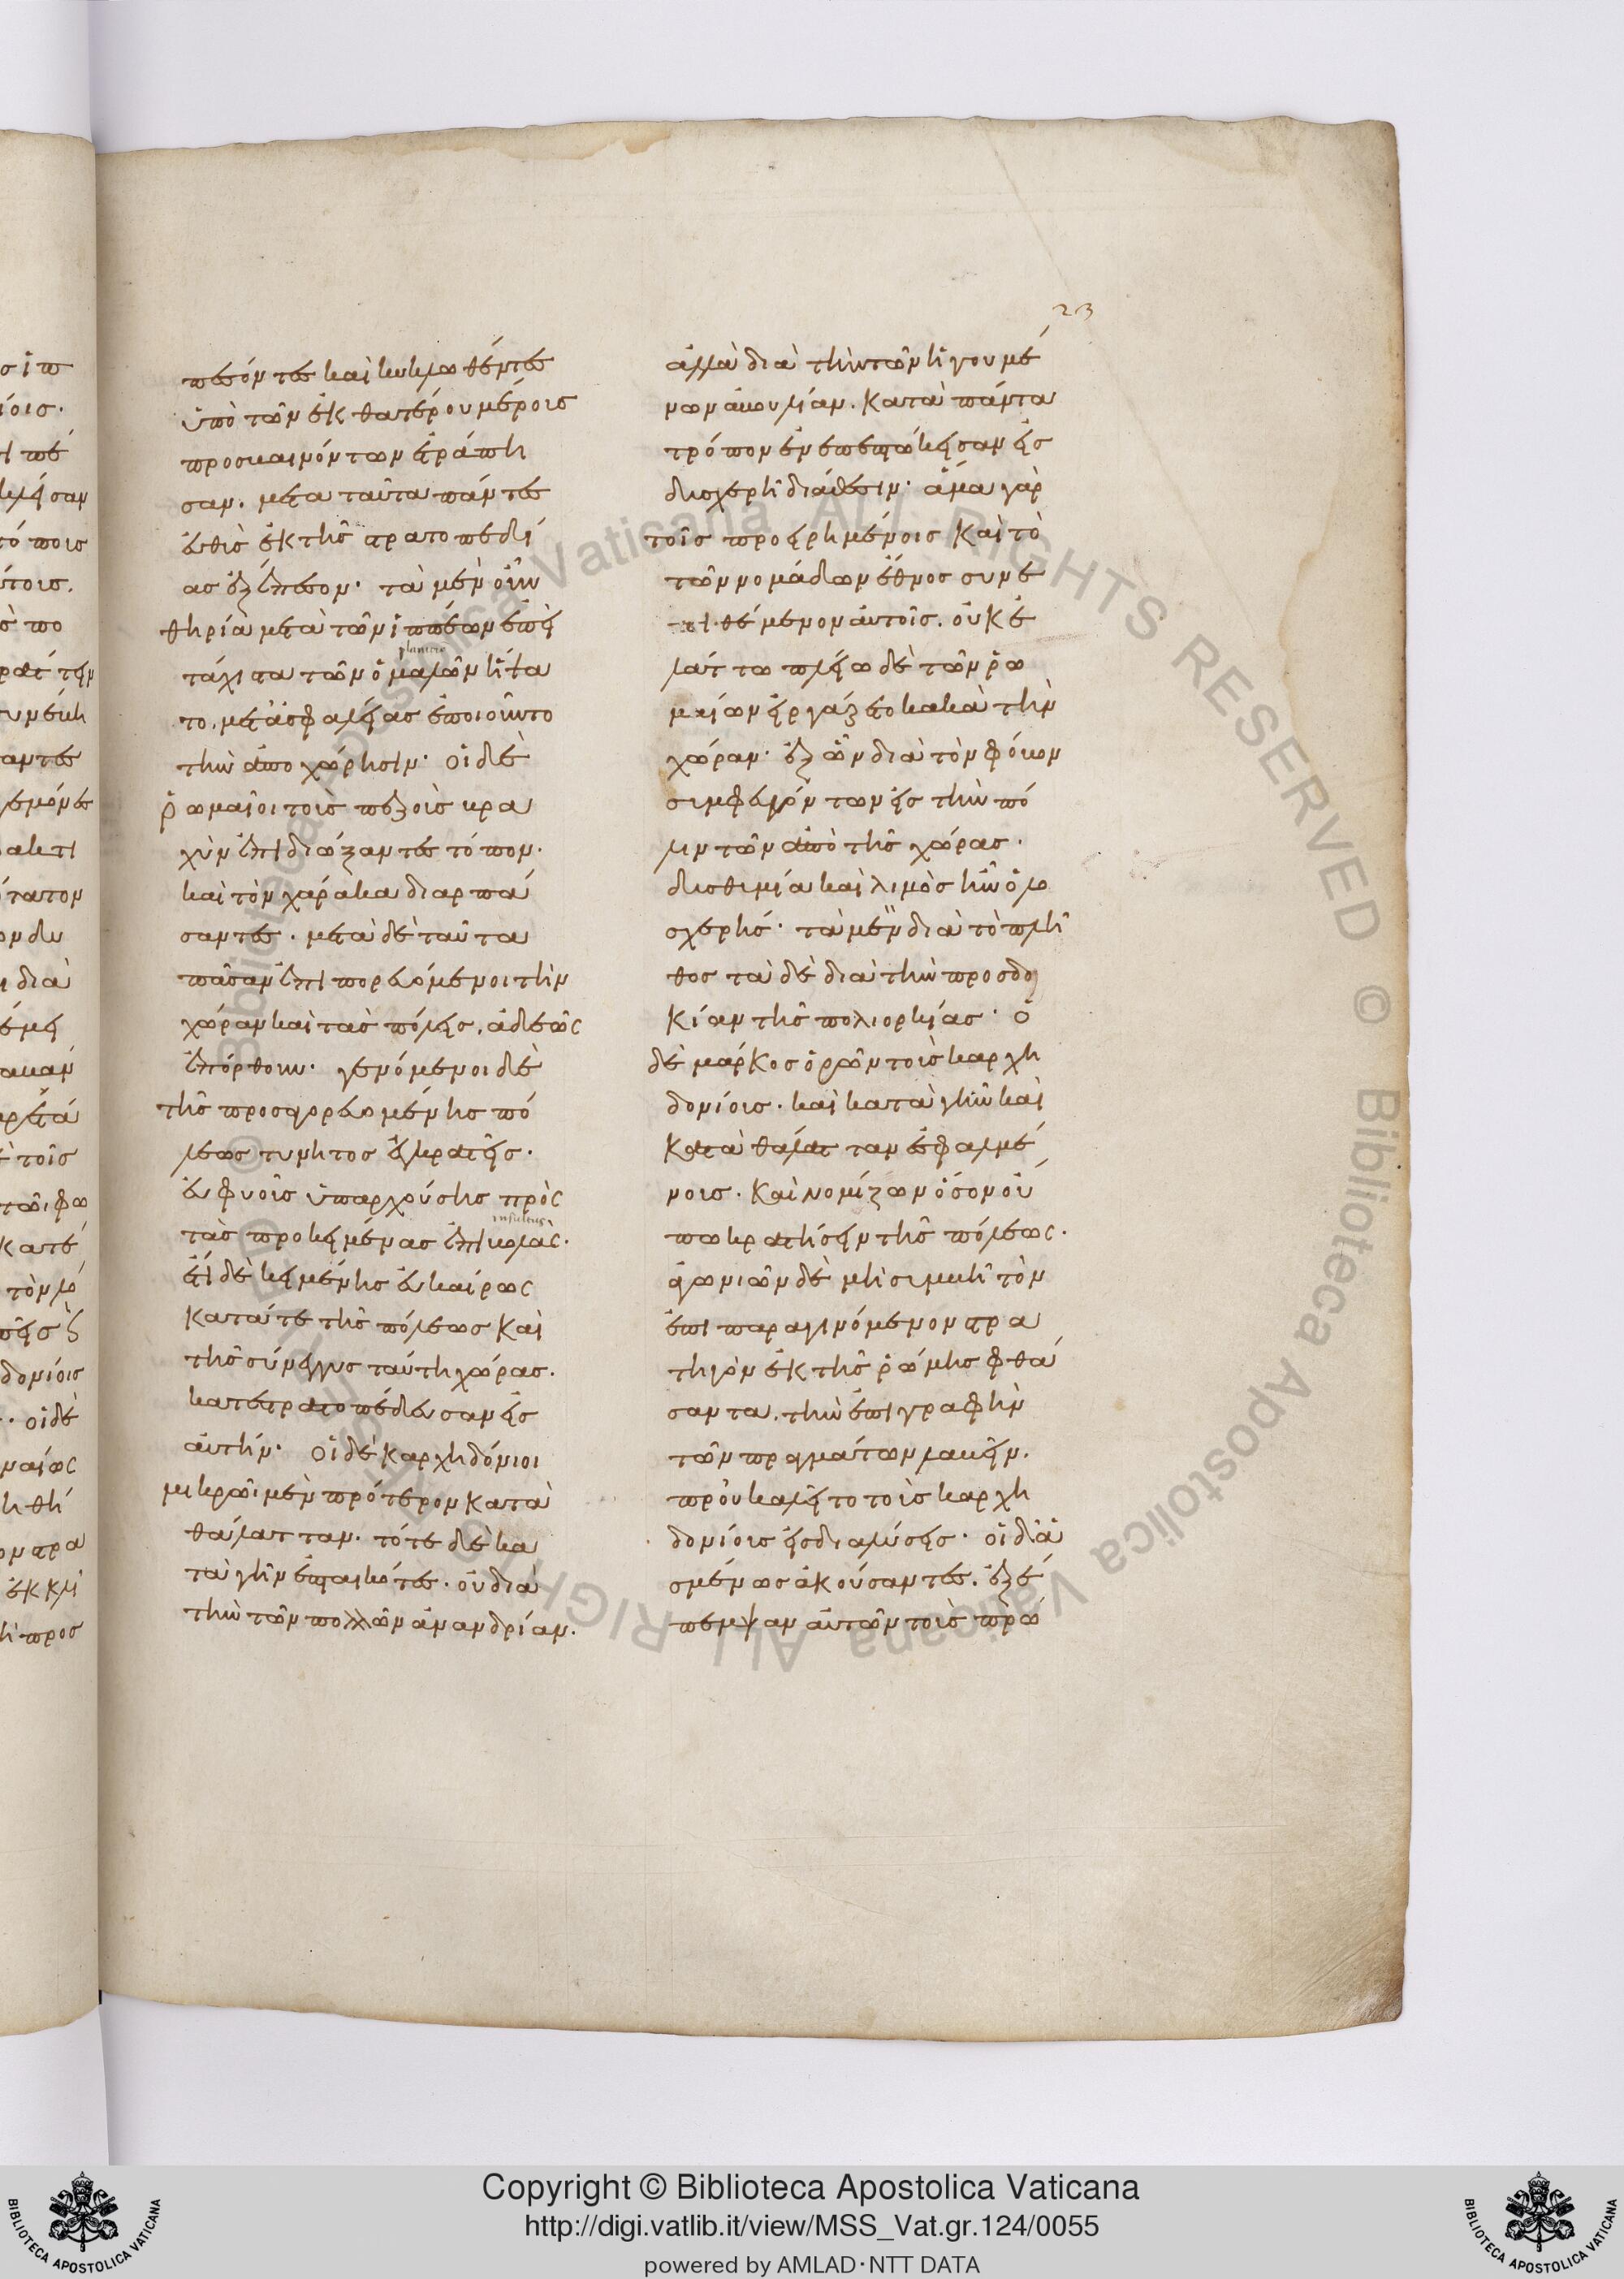 πεσόντες καὶ κυκλωθέντες
ὑπὸ τῶν ἐκ θατέρου μέρους
προσβαινόντων ἐτράπη
σαν. μετα ταῦτα πάντες
εὐθὺς ἐκ τῆς στρατοπεδεί
ας ἐξέπεσον· τὰ μὲν οὖν
θηρία μετὰ τῶν ἱππέων ἐπεὶ
planitie
τάχιστα τῶν ὁμαλῶν ἥψα
το. μετἀσφαλείας ἐποιοῦντο
τὴν ἀποχώρησιν· οἱ δὲ
ῥωμαῖοι τοὺς πεζοὺς βρα
χὺν ἐπιδιώξαντες τόπον·
καὶ τὸν χάρακα διαρπά
σαντες. μετὰ δὲ ταῦτα
πᾶσαν ἐπιπορευόμενοι τὴν
χώραν καὶ τὰς πόλεις, ἀδεῶς
ἐπόρθουν· γενόμενοι δὲ
τῆς προσαγορευομένης πό
λεως τυνητος ἐγκρατεῖς·
εὐφυοῦς ὑπαρχούσης πρὸς
insultus
τὰς προκειμένας ἐπιβολὰς·
ἔτι δὲ κειμένης εὐκαίρως
κατά τε τῆς πόλεως καὶ
τῆς σύνεγγυς ταύτη χώρας·
κατεστρατοπέδευσαν εἰς
αὐτήν· οἱ δὲ καρχηδόνιοι
μικρῶι μὲν πρότερον κατὰ
θάλατταν· τότε δὲ κα
τὰ γῆν ἐπταικότες· οὐ διὰ
τὴν τῶν πολλῶν ἀνανδρίαν·
23
ἀλλὰ διὰ τὴν τῶν ἡγουμέ
νων ἀβουλίαν. κατὰ πάντα
τρόπον ἐνεπεπτώκεισαν εἰς
δυσχερῆ διάθεσιν· ἅμα γὰρ
τοῖς προειρημένοις καὶ τὸ
τῶν νομάδων ἔθνος συνε
πιθέμενον αὐτοῖς. οὐκ ἐ
λάττω πλείω δὲ τῶν ῥω
μαίων εἰργάζετο κακὰ τὴν
χώραν· ἐξ ὧν διὰ τὸν φόβον
συμφευγόντων εἰς τὴν πό
λιν τῶν ἀπὸ τῆς χώρας·
δυσθυμία καὶ λιμὸς ἦν ὁλο
σχερής· τὰ μὲν διὰ τὸ πλῆ
θος τὰ δὲ διὰ τὴν προσδο
κίαν τῆς πολιορκίας· ὁ
δὲ μάρκος ὁρῶν τοὺς καρχη
δονίους· καὶ κατὰ γῆν καὶ
κατὰ θάλατταν ἐσφαλμέ
νους· καὶ νομίζων ὅσον οὔ
πω κρατήσειν τῆς πόλεως·
ἀγωνιῶν δὲ μὴ συμβῆ τὸν
ἐπιπαραγινόμενον στρα
τηγὸν ἐκ τῆς ῥώμης φθά
σαντα, τὴν ἐπιγραφὴν
τῶν πραγμάτων λαβεῖν.
προὐκαλεῖτο τοὺς καρχη
δονίους εἰς διαλύσεις· οἱ δ᾽ ἀ
σμένως ἀκούσαντες· ἐξέ
πεμψαν αὑτῶν τοὺς πρώ
Copyright © Biblioteca Apostolica Vaticana
http://digi.vatlib.it/view/MSS_Vat.gr.124/0055
powered by AMLAD·NTT DATA